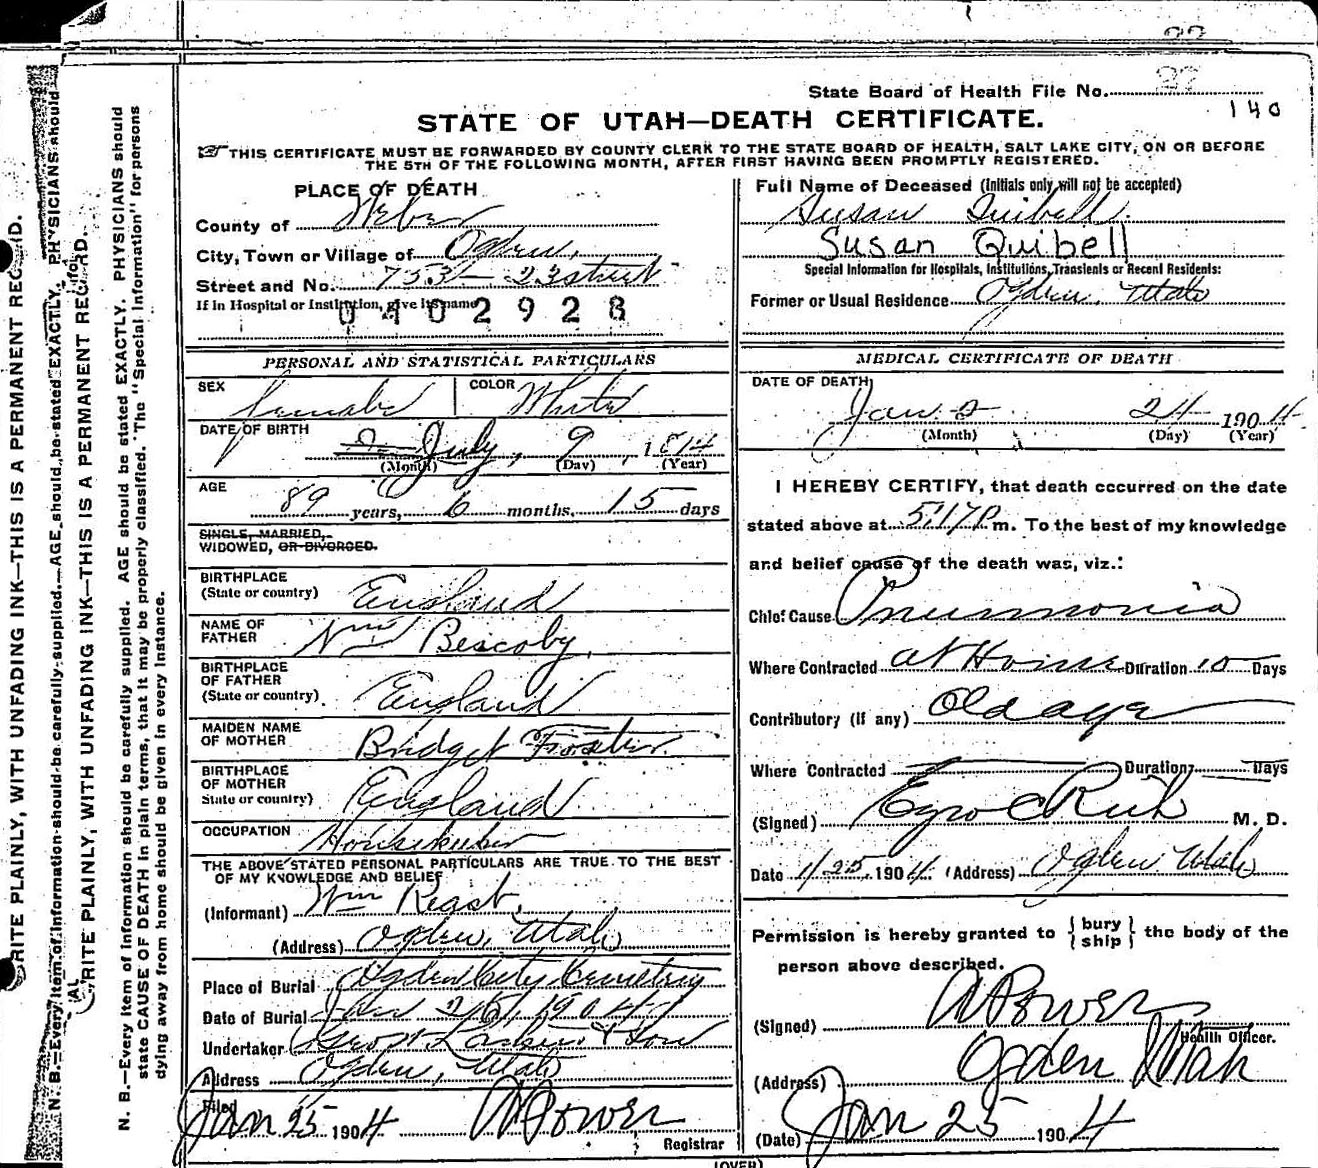 State Board of Health File No. 22
140
STATE OF UTAH—DEATH CERTIFICATE.
THIS CERTIFICATE MUST BE FORWARDED BY COUNTY CLERK TO THE STATE BOARD OF HEALTH, SALT LAKE CITY, ON OR BEFORE
THE 5TH OF THE FOLLOWING MONTH, AFTER FIRST HAVING BEEN PROMPTLY REGISTERED.
PLACE OF DEATH
County of Weber
City, Town or Village of Ogden,
Street and No. 753 - 23 street
If in Hospital or Institution, give its name
0402928
Full Name of Deceased (Initials only will not be accepted)
Susan Quibell.
Susan Quibell
Special Information for Hospitals, Institutions, Transients or Recent Residents:
Former or Usual Residence Ogden, Utah
PERSONAL AND STATISTICAL PARTICULARS
SEX female COLOR White
DATE OF BIRTH July, 9, 1814
(Month) (Day) (Year)
AGE
89 years, 6 months, 15 days
SINGLE, MARRIED,
WIDOWED, OR DIVORCED.
BIRTHPLACE
(State or country) England
NAME OF
FATHER Wm Bescoby,
BIRTHPLACE
OF FATHER
(State or country) England
MAIDEN NAME
OF MOTHER Bridget Foster
BIRTHPLACE
OF MOTHER
State or country) England
OCCUPATION Housekeeper
THE ABOVE STATED PERSONAL PARTICULARS ARE TRUE TO THE BEST
OF MY KNOWLEDGE AND BELIEF
(Informant) Wm Reast,
(Address) Ogden, Utah
Place of Burial Ogden City Cemetery
Date of Burial Jan 26, 1904
Undertaker Larkin & Son
Address Ogden, Utah
Filed
Jan 25 1904 A Power
Registrar
MEDICAL CERTIFICATE OF DEATH
DATE OF DEATH
Jan 24 1904
(Month) (Day) (Year)
I HEREBY CERTIFY, that death occurred on the date
stated above at 5:17 P m. To the best of my knowledge
and belief cause of the death was, viz.:
Chief Cause Pneumonia
Where Contracted at Home Duration 10 Days
Contributory (if any) Old age
Where Contracted Duration Days
(Signed) Ezra C Rich M. D.
Date 1/25, 1904 (Address) Ogden Utah
Permission is hereby granted to { bury ship } the body of the
person above described.
(Signed) A Power
Health Officer.
(Address) Ogden Utah
(Date) Jan 25 1904
(OVER)
WRITE PLAINLY, WITH UNFADING INK—THIS IS A PERMANENT RECORD.
N. B.—Every item of information should be carefully supplied. AGE should be stated EXACTLY. PHYSICIANS should
WRITE PLAINLY, WITH UNFADING INK—THIS IS A PERMANENT RECORD.
N. B.—Every item of information should be carefully supplied. AGE should be stated EXACTLY. PHYSICIANS should
state CAUSE OF DEATH in plain terms, that it may be properly classified. The "Special Information" for persons
dying away from home should be given in every instance.